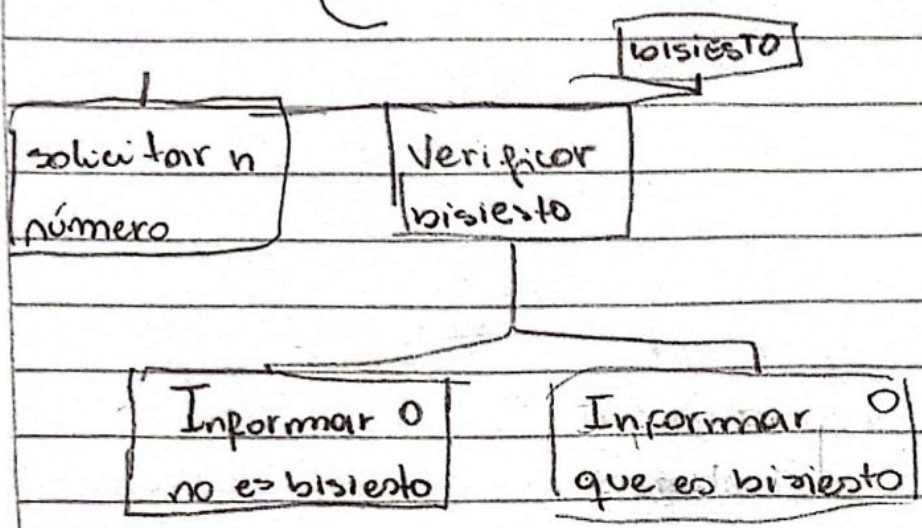 bisiesto
solicitar n
número
Verificar
bisiesto
Informar o
no es bisiesto
Informar o
que es bisiesto